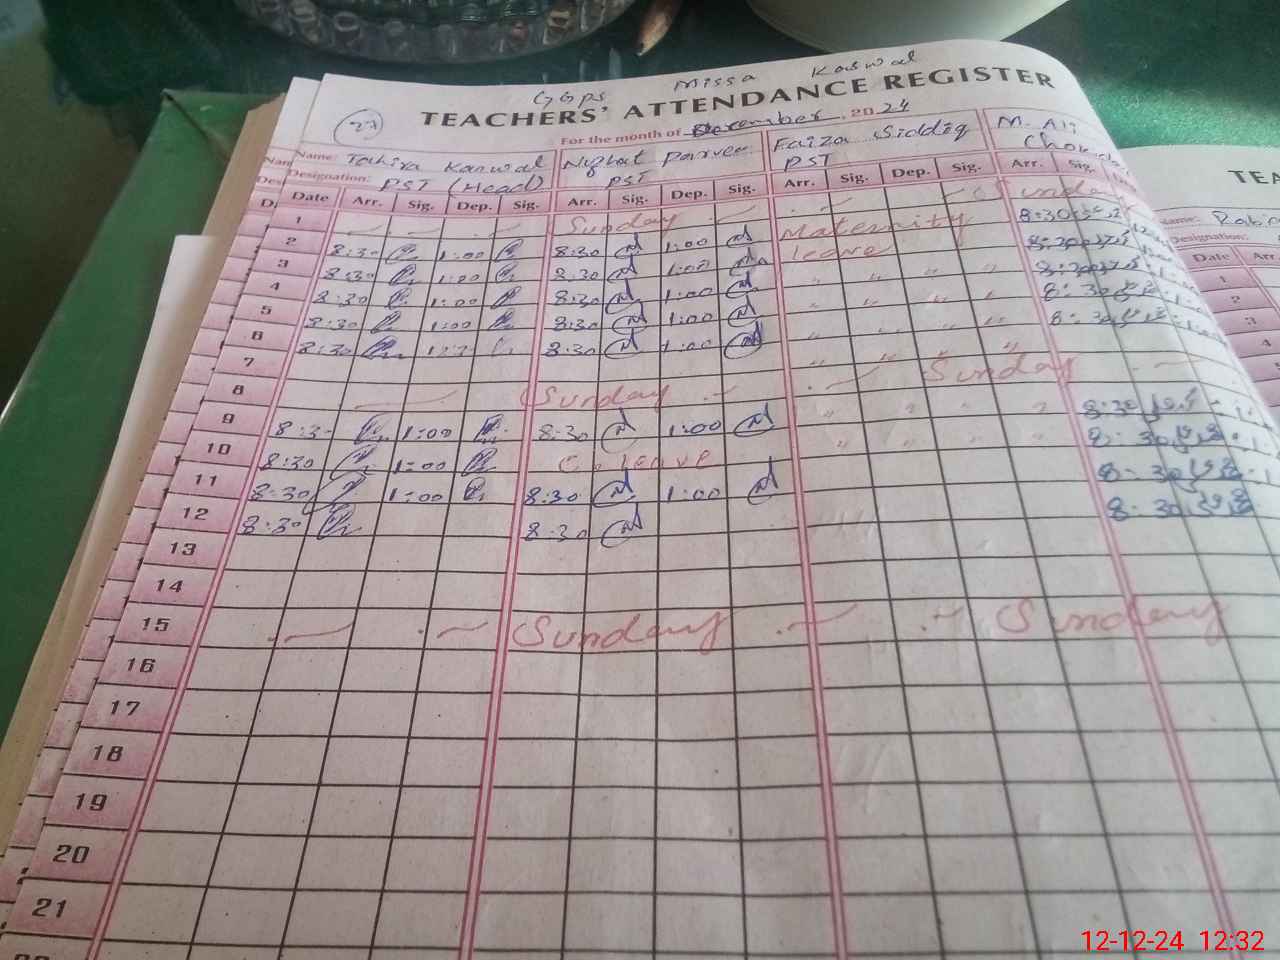 GGPS Missa Kaswal
TEACHERS' ATTENDANCE REGISTER
27
For the month of December, 2024
Name: Tahira Kanwal Nighat Parveen Faiza Siddiq M. Ali
Designation: PST (Head) PST PST
Date Arr. Sig. Dep. Sig. Arr. Sig. Dep. Sig. Arr. Sig. Dep. Sig. Arr. Sig.
1 Sunday Sunday
2 8:30 1:00 8:30 1:00 Maternity leave 8:30
3 8:30 1:00 8:30 1:00 " " "
4 8:30 1:00 8:30 1:00 " " " " 8:30
5 8:30 1:00 8:30 1:00 " " " " 8:30
6 8:30 8:30 1:00 " " " " 8:30
7
8 Sunday Sunday
9 8:30 1:00 8:30 1:00 " " " " 8:30
10 8:30 1:00 C. leave " " " " 8:30
11 8:30 1:00 8:30 1:00 8:30
12 8:30 8:30 8:30
13
14
15 Sunday Sunday
16
17
18
19
20
21
TEA
Name:
Designation:
Date Arr.
1
2
3
4
12-12-24 12:32